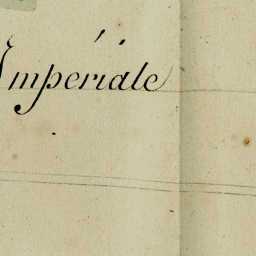 Impériale